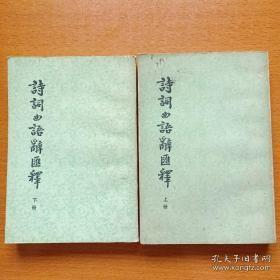 詩詞曲語辭匯釋
下册
詩詞曲語辭匯釋
上册
孔夫子旧书网